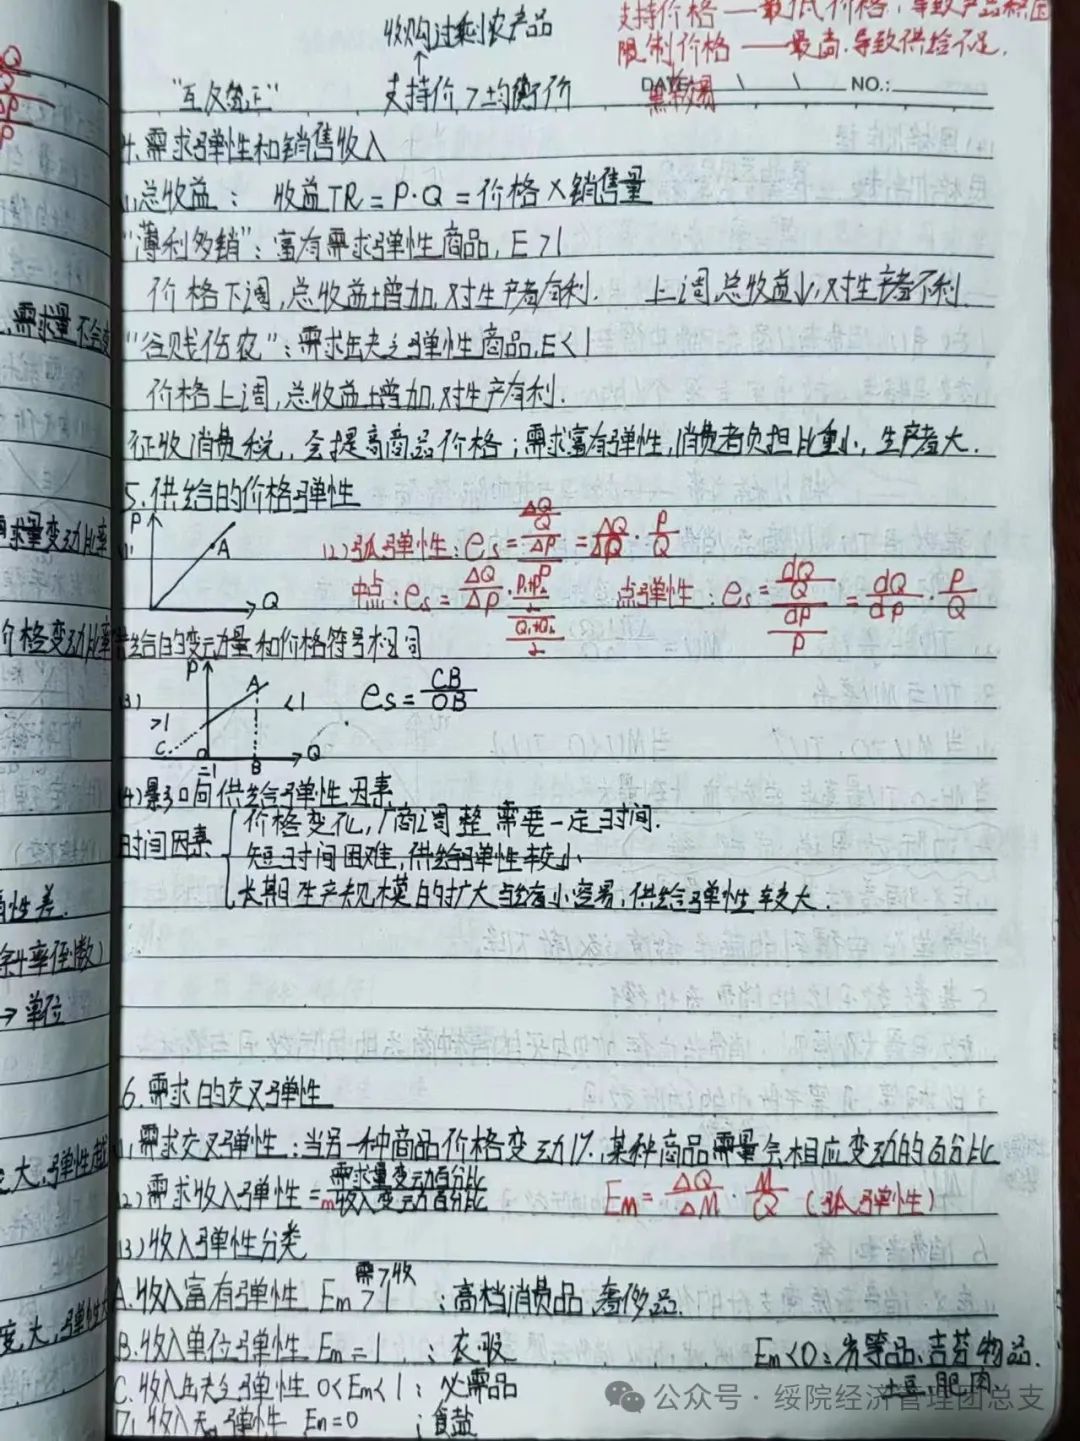 收购过剩农产品
支持价格——最低价格,导致产品过剩
限制价格——最高.导致供给不足.
黑市交易
DATE \ \ NO.:
支持价>均衡价
4.需求弹性和销售收入
(1)总收益: 收益TR=P·Q=价格×销售量
"薄利多销":富有需求弹性商品,E>1
价格下调,总收益增加,对生产者有利. 上调,总收益↓,对生产者不利.
"谷贱伤农":需求缺乏弹性商品,E<1
价格上调,总收益增加,对生产有利.
征收消费税,会提高商品价格;需求富有弹性,消费者负担比重小,生产者大.
5.供给的价格弹性
(1) P A Q
(2)弧弹性:es=(ΔQ/Q)/(ΔP/P)=ΔQ/ΔP·P/Q
中点:es=ΔQ/ΔP·((P1+P2)/2)/((Q1+Q2)/2) 点弹性:es=(dQ/Q)/(dP/P)=dQ/dP·P/Q
供给的变动量和价格符号相同
(3) P A >1 <1 C O =1 B Q es=CB/OB
(4)影响供给弹性因素
时间因素 价格变化,厂商调整需要一定时间.
短时间困难,供给弹性较小
长期生产规模的扩大与缩小容易,供给弹性较大.
6.需求的交叉弹性
(1)需求交叉弹性:当另一种商品价格变动1%,某种商品需量会相应变动的百分比
(2)需求收入弹性=需求量变动百分比/m收入变动百分比 Em=ΔQ/ΔM·M/Q (弧弹性)
(3)收入弹性分类
需>收
A.收入富有弹性 Em>1 ;高档消费品、奢侈品.
B.收入单位弹性 Em=1 ;衣服 Em<0:劣等品、吉芬物品.
C.收入缺乏弹性 0<Em<1;必需品 土豆、肥肉
D.收入无弹性 Em=0 ;食盐
需求量不会变
需求量变动比率
价格变动比率
斜率倒数)
→单位
大,弹性越
公众号·绥院经济管理团总支